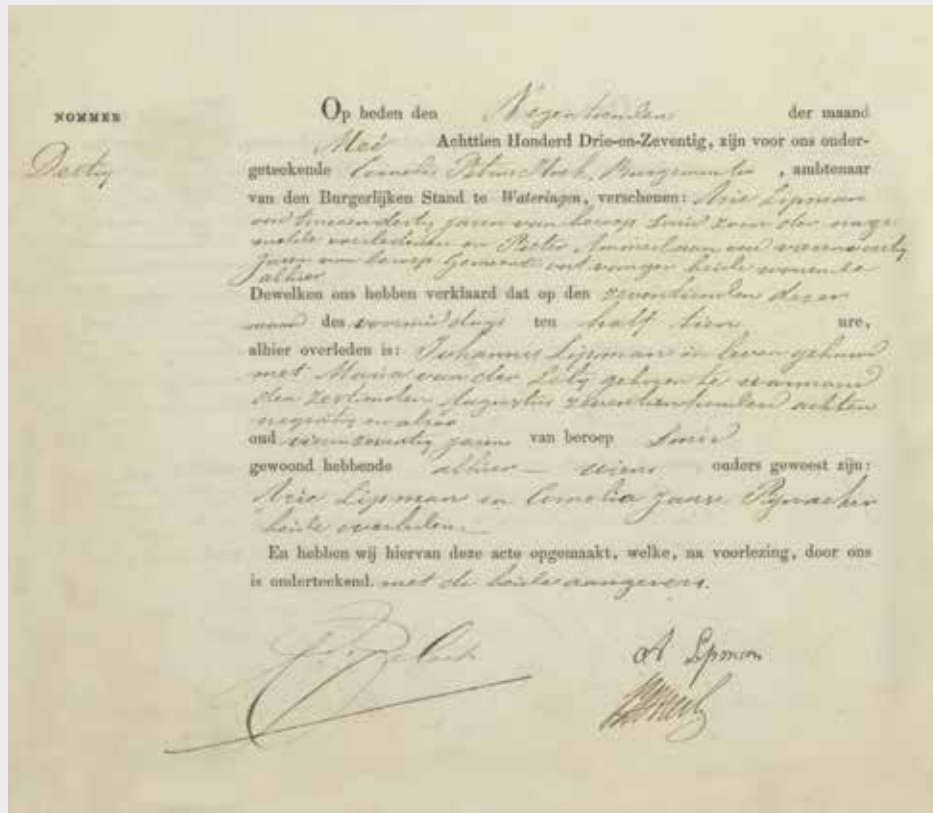 NOMMER
Dertig
Op heden den Negentienden der maand
Mei Achttien Honderd Drie-en-Zeventig, zijn voor ons onder-
geteekende Cornelis Petrus Burgemeester, ambtenaar
van den Burgerlijken Stand te Wateringen, verschenen: Arie Lipman
oud jaren van beroep Smid zoon der nage
melde overledenen en Pieter Ammerlaan oud
jaren van beroep Gemeente ontvanger beide wonende
alhier
Dewelken ons hebben verklaard dat op den zeventienden dezer
maand des voormiddags ten half tien ure,
alhier overleden is: Johannes Lipman in leven gehuwd
met Maria van der geboren te
den zestienden Augustus zeventienhonderd achten
negentig en alzoo
oud vierenzeventig jaren van beroep Smid
gewoond hebbende alhier — wiens ouders geweest zijn:
Arie Lipman en Cornelia
beide overleden.—
En hebben wij hiervan deze acte opgemaakt, welke, na voorlezing, door ons
is onderteekend. met de beide aangevers.
A Lipman